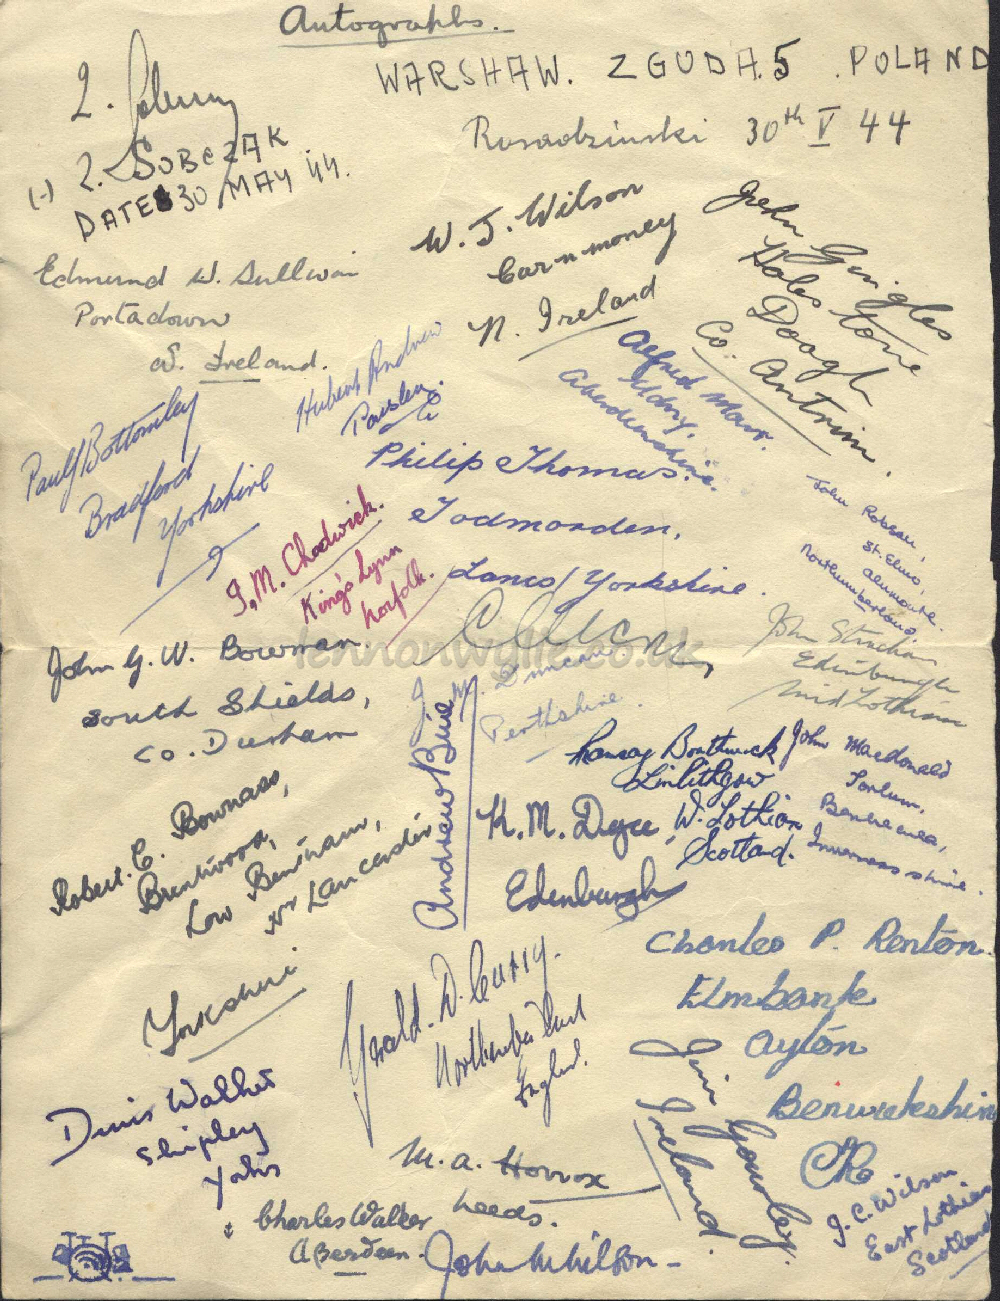 Autographs.
WARSHAW. ZGUDA. 5. POLAND
Rosadzinski 30th V 44
(-) Z. SOBCZAK
DATE 30 MAY 44.
Edmund W. Sullivan
Portadown
N. Ireland.
W. J. Wilson
Carnmoney
N. Ireland
John Gingles
Halestone
Doagh
Co. Antrim.
Hubert Andrew
Paisley.
Alfred Marr.
Udny,
Aberdeenshire.
Paul Bottomley
Bradford
Yorkshire
Philip Thomas.
Todmorden,
Lancs/Yorkshire.
J. M. Chadwick.
King's Lynn
Norfolk.
John Robson,
St. Elmo,
Alnmouth.
Northumberland.
John G. W. Bowman.
South Shields,
Co. Durham
lennonwylie.co.uk
J. M. Duncan
Perthshire.
John Strachan
Edinburgh
Midlothian
Andrew Birie
Ramsay Borthwick
Linlithgow
W. Lothian
Scotland.
John Macdonald
Torlum,
Benbecula,
Inverness shire.
K. M. Dyce,
Edinburgh
Robert. C. Bownass,
Brentwood,
Low Bentham,
Nr Lancaster
Yorkshire
Gerald. D. Curry.
Northumberland
England.
Charles P. Renton.
Elmbank
Ayton
Berwickshire
CR
Denis Walker
Shipley
Yorks
M. A. Horrox
Leeds.
Jim Gourley.
Ireland.
Charles Walker
Aberdeen.
John W Wilson-
J. C. Wilson
East Lothian
Scotland